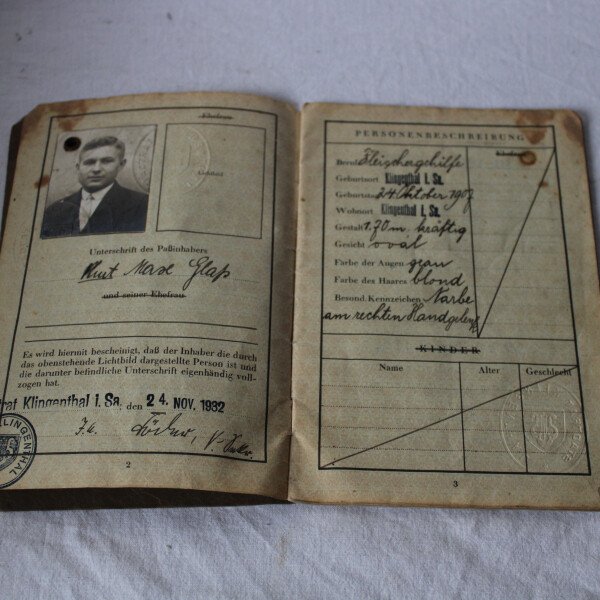 Ehefrau
Lichtbild
Unterschrift des Paßinhabers
Kurt Max Glaß
und seiner Ehefrau
Es wird hiermit bescheinigt, daß der Inhaber die durch
das obenstehende Lichtbild dargestellte Person ist und
die darunter befindliche Unterschrift eigenhändig voll-
zogen hat.
rat Klingenthal i. Sa., den 24. NOV. 1932
KLINGENTHAL
2
PERSONENBESCHREIBUNG
Ehefrau
Beruf Fleischergehilfe
Geburtsort Klingenthal i. Sa.
Geburtstag 24. Oktober 1907
Wohnort Klingenthal i. Sa.
Gestalt 1.70 m. kräftig
Gesicht oval
Farbe der Augen grau
Farbe des Haares blond
Besond. Kennzeichen Narbe
am rechten Handgelenk
KINDER
Name Alter Geschlecht
3